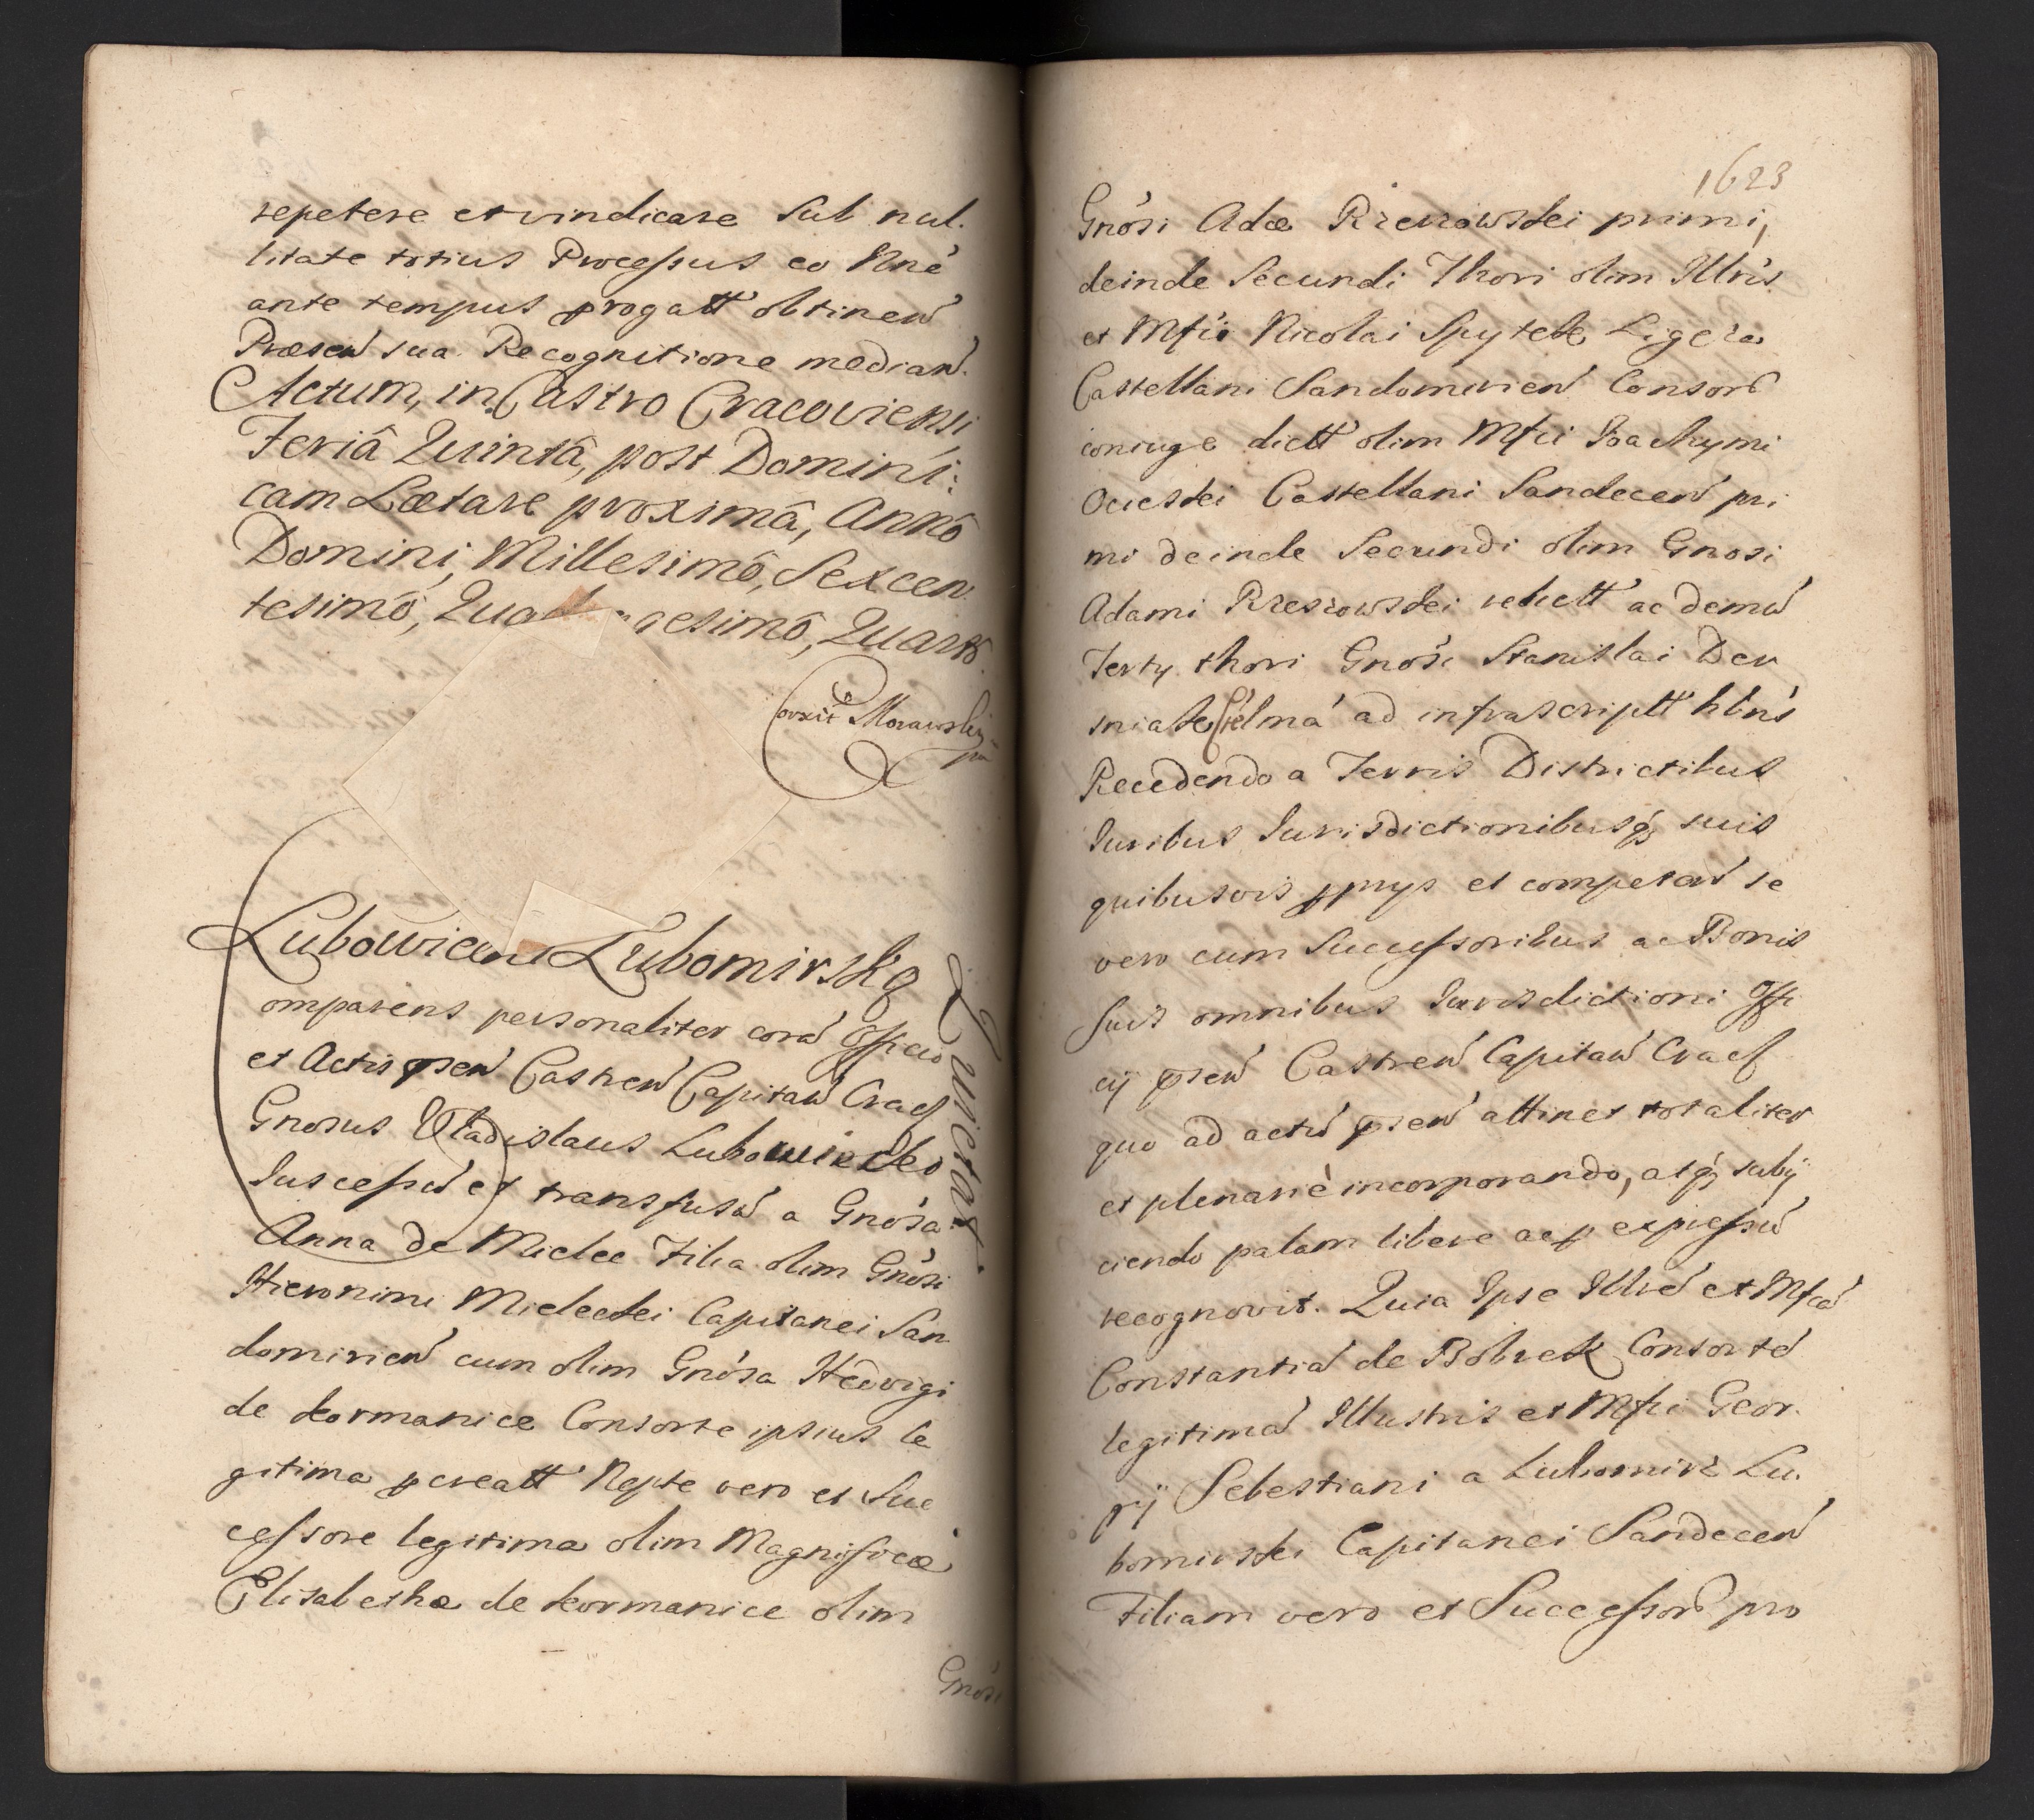 repetere et vindicare Sub nul.
litate totius Processus eo Nnè
ante tempus progatt obtinen
Præsen sua Recognitione median.
Actum, in Castro Cracoviensi
Feriâ Quintâ, post Domini:
cam Lætare proximâ, Annô
Domini, Millesimô, Sexcen
tesimô, Quadragesimô, Quartô.
Correxit Morawsky
Lubowiecki Lubomirska
Quietat.
omparens personaliter corã Officio
et Actis psen Castren Capitan Cracs
Gnosus Vladislaus Lubowiecki
Successã et transfusã a Gnósa
Anna de Mielec Filia olim Gnósi
Hieronimi Mieleckei Capitanei San
domirien cum olim Gnósa Hedvigi
de kormanice Consorte ipsius le
gitima pcreatt Nepte vero et Suc
cessore legitima olim Magnificæ
Elisabethæ de kormanice olim
Gnósi
1623
Gnósi Adæ Rzeszowskei primi,
deinde Secundi Thori olim Illris
et Mfci Nicolai Spytek Ligęza
Castellani Sandomirien Consor
coniuge dictt olim Mfci Joachymi
Ocieskei Castellani Sandecen pri
mi deinde Secundi olim Gnosi
Adami Rzeszowskei relictt ac demũ
Terty thori Gnósi Stanislai Der
sniak ad infrascriptt hbns
Recedendo a Terris Districtibus
Iuribus Iurisdictionibusq suis
quibusvis pprijs et competen se
vero cum Successoribus ac Bonis
Suis omnibus Iurisdictioni Offi
cij psen Castren Capitan Cracs
quo ad actũ psen attinet totaliter
et plenariè incorporando, atq subij
ciendo palam libere ac p expressũ
recognovit. Quia Ipse Illrẽ et Mfcã
Constantiã de Bobrek Consortẽ
legitimã Illustris et Mfci Geor.
gij Sebestiani a Lubomirz Lu.
bomirskei Capitanei Sandecen
Filiam vero et Successor pro